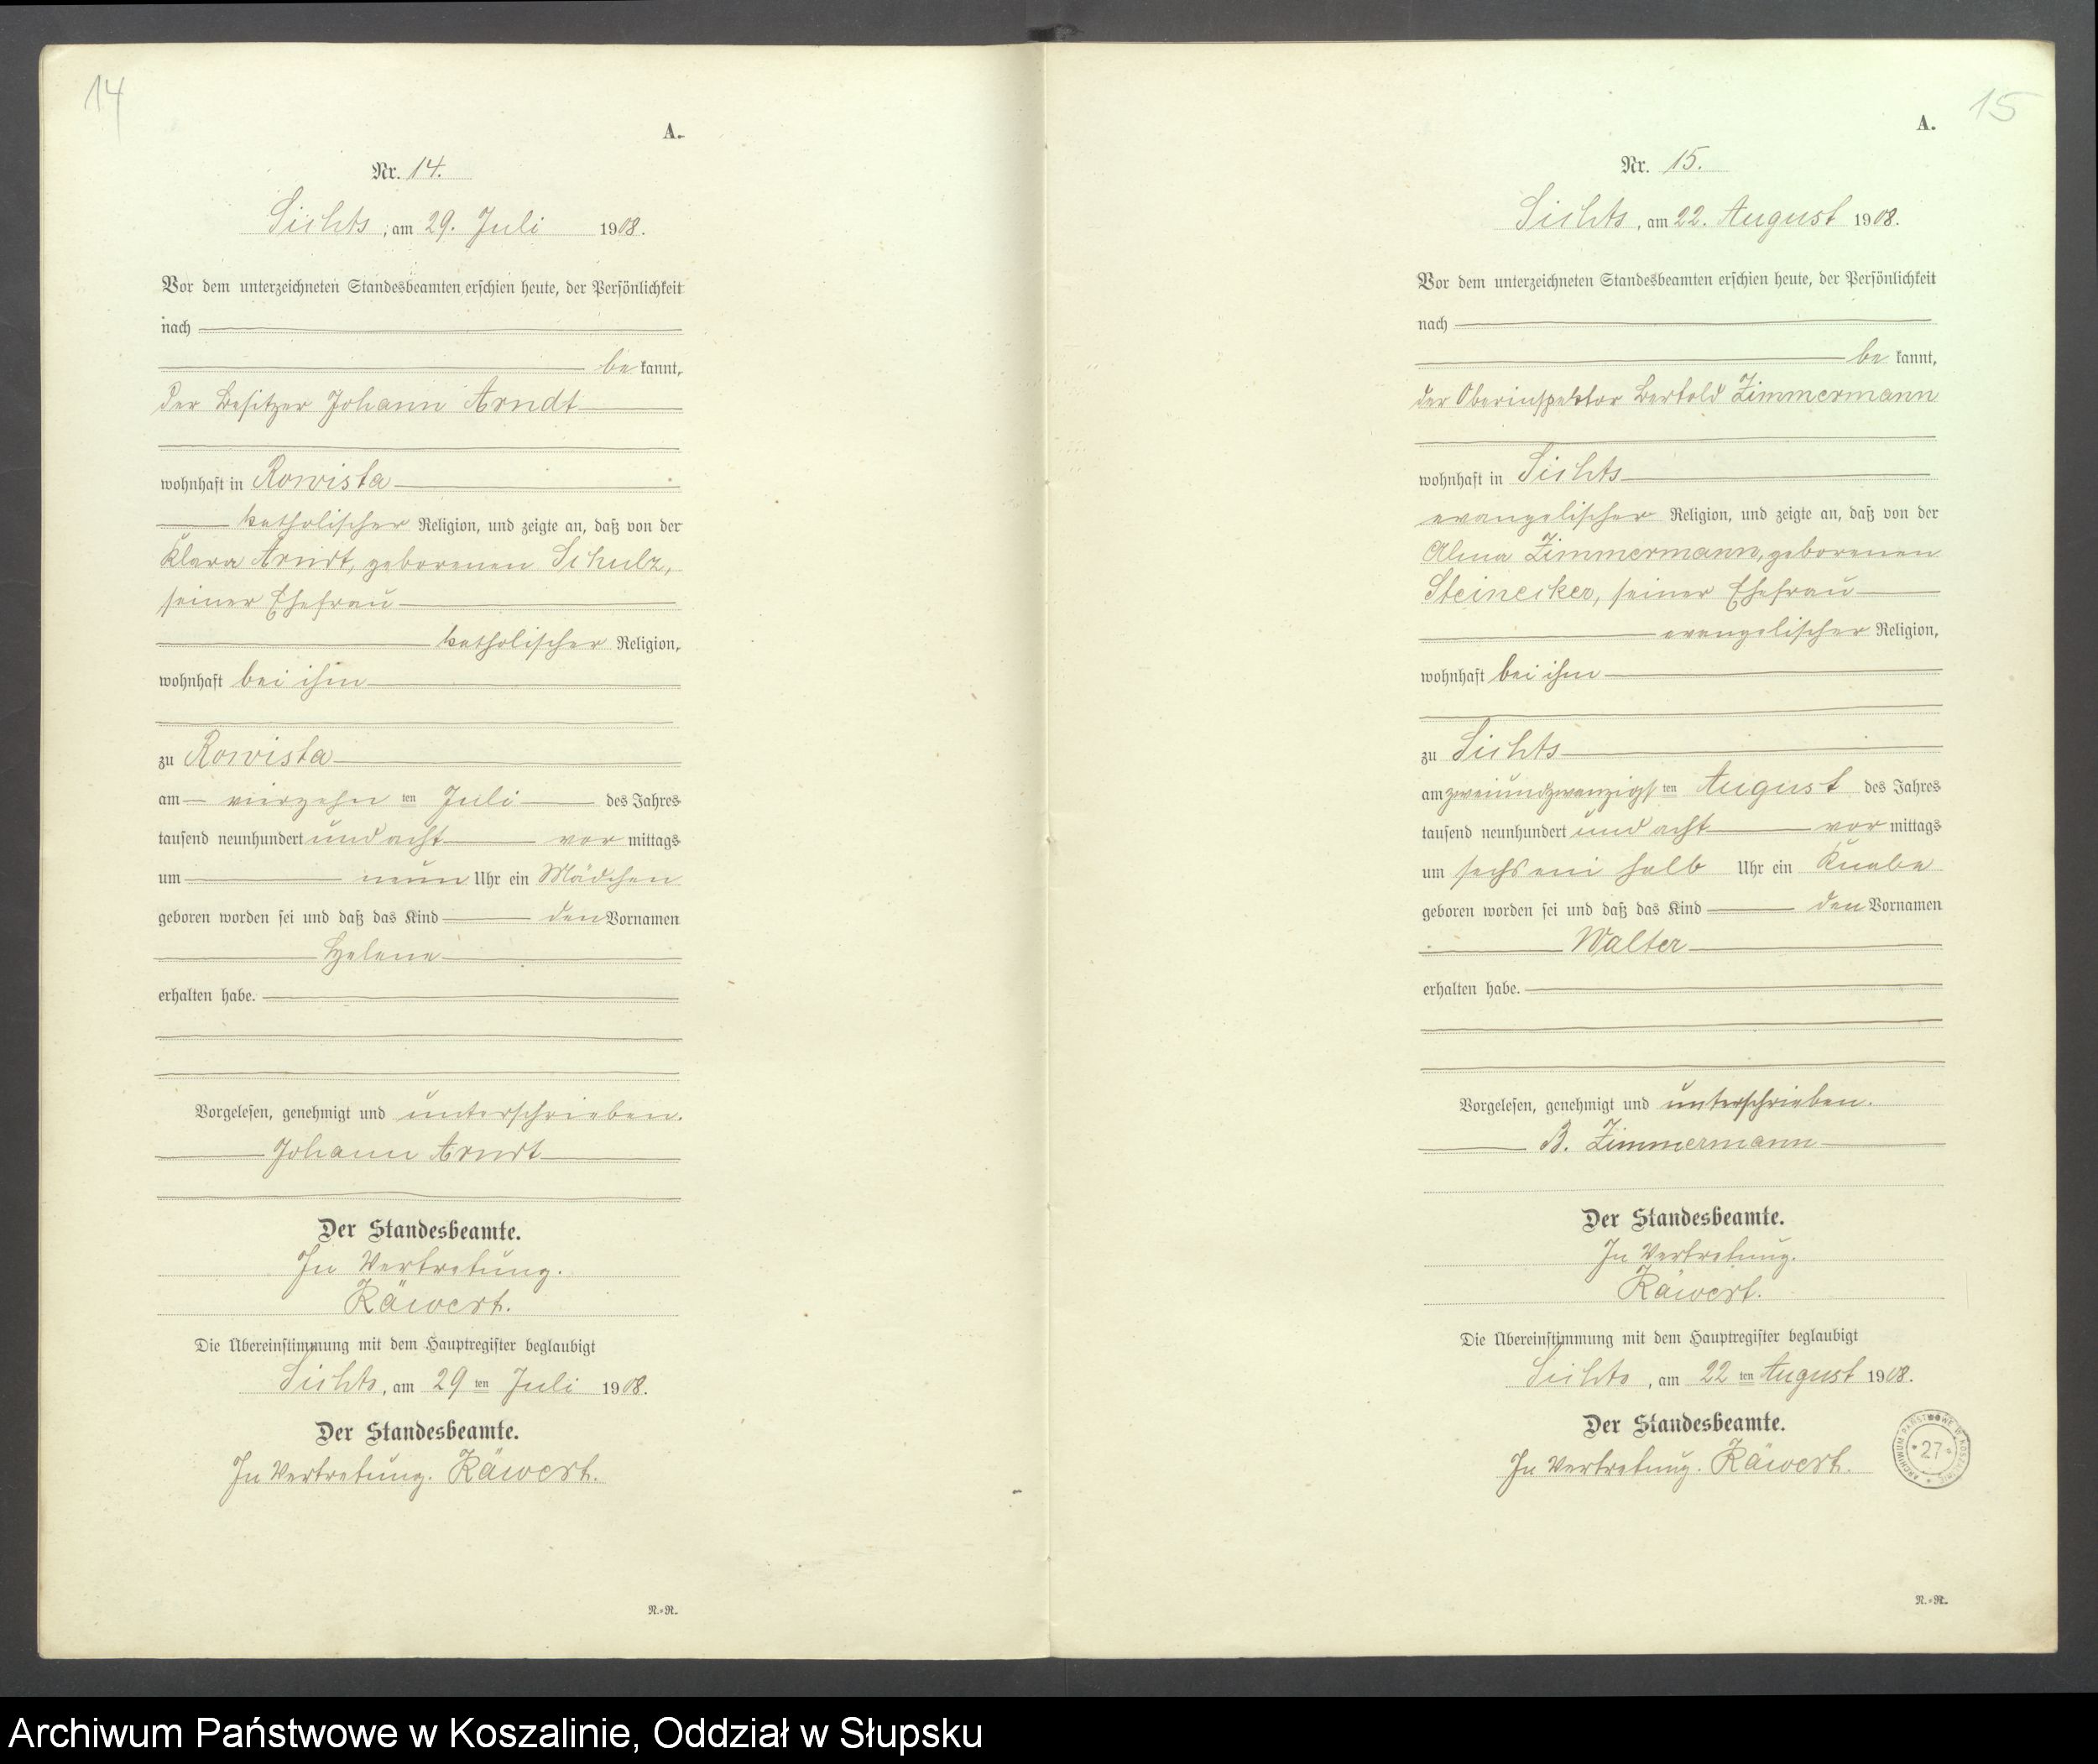 14
A.
Nr. 14.
Sichts, am 29. Juli 1908.
Vor dem unterzeichneten Standesbeamten erschien heute, der Persönlichkeit
nach
be kannt,
der Besitzer Johann Arndt
wohnhaft in Rowista
katholischer Religion, und zeigte an, daß von der
Klara Arndt, geborenen Schulz,
seiner Ehefrau
katholischer Religion,
wohnhaft bei ihm
zu Rowista
am vierzehn ten Juli des Jahres
tausend neunhundert und acht vor mittags
um neun Uhr ein Mädchen
geboren worden sei und daß das Kind den Vornamen
Helene
erhalten habe.
Vorgelesen, genehmigt und unterschrieben.
Johann Arndt
Der Standesbeamte.
In Vertretung.
Räwert.
Die Übereinstimmung mit dem Hauptregister beglaubigt
Sichts, am 29 ten Juli 1908.
Der Standesbeamte.
In Vertretung. Räwert.
N.=R.
15
A.
Nr. 15.
Sichts, am 22. August 1908.
Vor dem unterzeichneten Standesbeamten erschien heute, der Persönlichkeit
nach
be kannt,
der Oberinspektor Bertold Zimmermann
wohnhaft in Sichts
evangelischer Religion, und zeigte an, daß von der
Alma Zimmermann, geborenen
Steinecker, seiner Ehefrau
evangelischer Religion,
wohnhaft bei ihm
zu Sichts
am zweiundzwanzigs ten August des Jahres
tausend neunhundert und acht vor mittags
um sechs ein halb Uhr ein Knabe
geboren worden sei und daß das Kind den Vornamen
Walter
erhalten habe.
Vorgelesen, genehmigt und unterschrieben.
B. Zimmermann
Der Standesbeamte.
In Vertretung.
Räwert.
Die Übereinstimmung mit dem Hauptregister beglaubigt
Sichts, am 22 ten August 1908.
Der Standesbeamte.
In Vertretung. Räwert.
ARCHIWUM PAŃSTWOWE W KOSZALINIE
* 27 *
N.=R.
Archiwum Państwowe w Koszalinie, Oddział w Słupsku